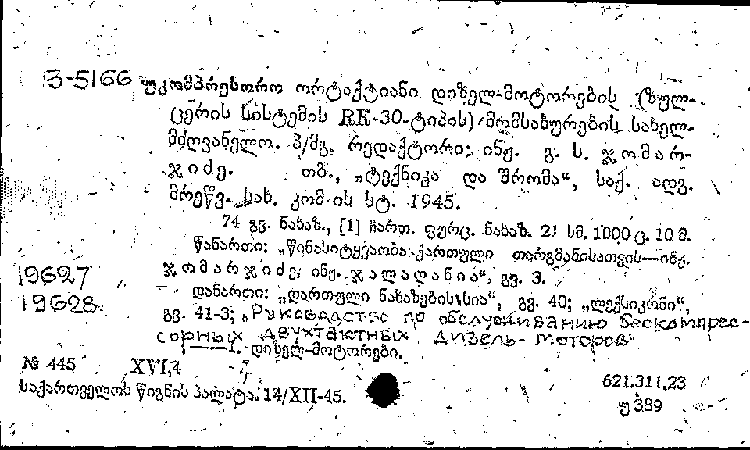 3-5166 უკომპრესორო ორტაქტიანი დიზელ-მოტორების (ზულ-
ცერის სისტემის RK-30-ტიპის) მომსახურების სახელ-
მძღვანელო. პ/მგ. რედაქტორი: ინჟ. გ. ს. ჯომარ-
ჯიძე. თბ., „ტექნიკა და შრომა“, საქ. ადგ.
მრეწვ. სახ. კომ-ის სტ. 1945.
74 გვ. ნახაზ., [1] ჩართ. ფურც. ნახაზ. 21 სმ. 1000 ც. 10 მ.
წინართი: „წინასიტყვაობა ქართული თარგმანისათვის—ინჟ.
19627 ჯომარჯიძე; ინჟ. ჯალაღანია“, გვ. 3.
19628 დანართი: „დართული ნახაზების სია“, გვ. 40; „ლექსიკონი“,
გვ. 41-3; „Руководство по обслуживанию бескомпрес-
сорных двухтактных дизель-моторов“
1. დიზელ-მოტორები.
№ 445 XVI,4
საქართველოს წიგნის პალატა. 14/XII-45.
621.311.23
უ 389